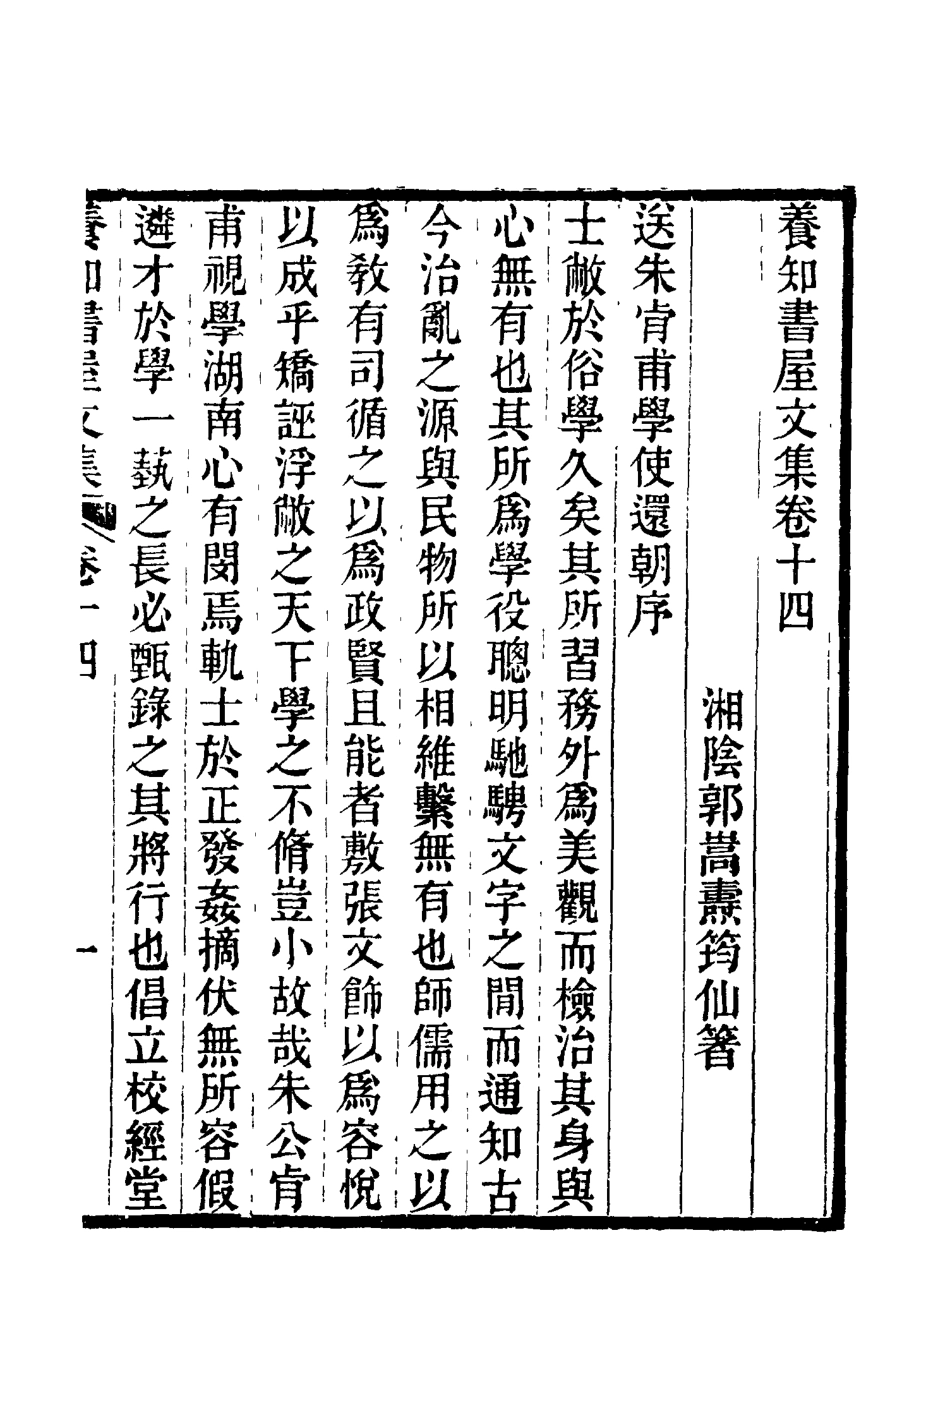 養知書屋文集卷十四
湘陰郭嵩燾筠仙箸
送朱肯甫學使還朝序
士敝於俗學久矣其所習務外爲美觀而檢治其身與
心無有也其所爲學役聰明馳騁文字之閒而通知古
今治亂之源與民物所以相維繫無有也師儒用之以
爲敎有司循之以爲政賢且能者敷張文飾以爲容悅
以成乎矯誣浮敝之天下學之不脩豈小故哉朱公肯
甫視學湖南心有閔焉軌士於正發姦摘伏無所容假
遴才於學一蓺之長必甄錄之其將行也倡立校經堂
養知書屋文集 卷十四 一